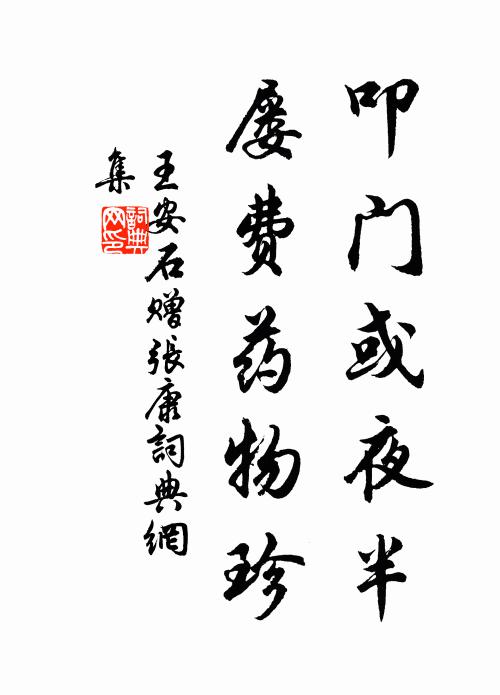 叩门或夜半
屡费药物珍
王安石赠張康詞典網
集
詞典
网印